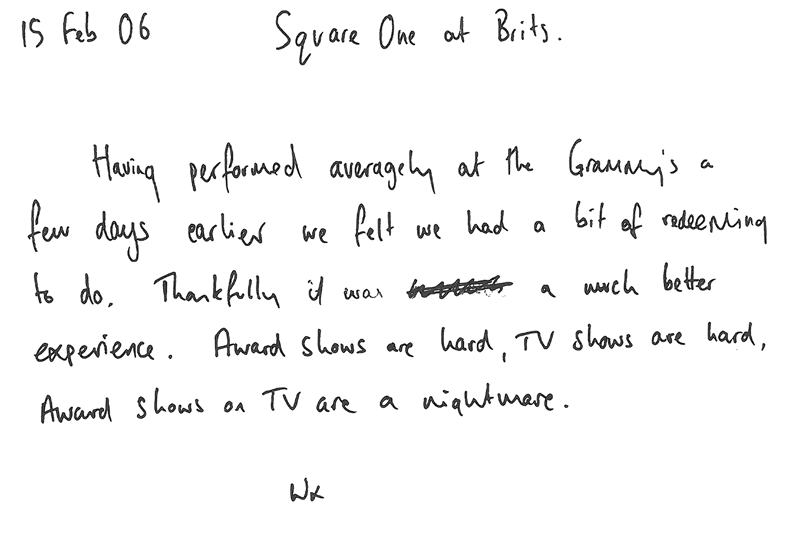 15 Feb 06 Square One at Brits.
Having performed averagely at the Grammy's a
few days earlier we felt we had a bit of redeeming
to do. Thankfully it was a much better
experience. Award shows are hard, TV shows are hard,
Award shows on TV are a nightmare.
Wx